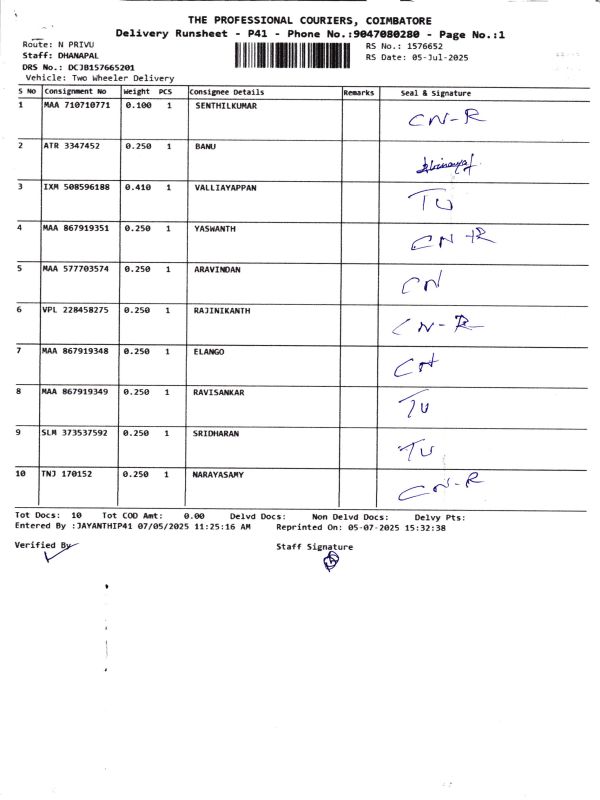 THE PROFESSIONAL COURIERS, COIMBATORE
Delivery Runsheet - P41 - Phone No.:9047080280 - Page No.:1
Route: N PRIVU
RS No.: 1576652
Staff: DHANAPAL
RS Date: 05-Jul-2025
DRS No.: DCJB157665201
Vehicle: Two Wheeler Delivery
S No Consignment No Weight PCS Consignee Details Remarks Seal & Signature
1 MAA 710710771 0.100 1 SENTHILKUMAR CN-R
2 ATR 3347452 0.250 1 BANU
3 IXM 508596188 0.410 1 VALLIAYAPPAN TU
4 MAA 867919351 0.250 1 YASWANTH CN-R
5 MAA 577703574 0.250 1 ARAVINDAN CN
6 VPL 228458275 0.250 1 RAJINIKANTH CN-R
7 MAA 867919348 0.250 1 ELANGO CN
8 MAA 867919349 0.250 1 RAVISANKAR TU
9 SLM 373537592 0.250 1 SRIDHARAN TU
10 TNJ 170152 0.250 1 NARAYASAMY CN-R
Tot Docs: 10 Tot COD Amt: 0.00 Delvd Docs: Non Delvd Docs: Delvy Pts:
Entered By :JAYANTHIP41 07/05/2025 11:25:16 AM Reprinted On: 05-07-2025 15:32:38
Verified By
Staff Signature